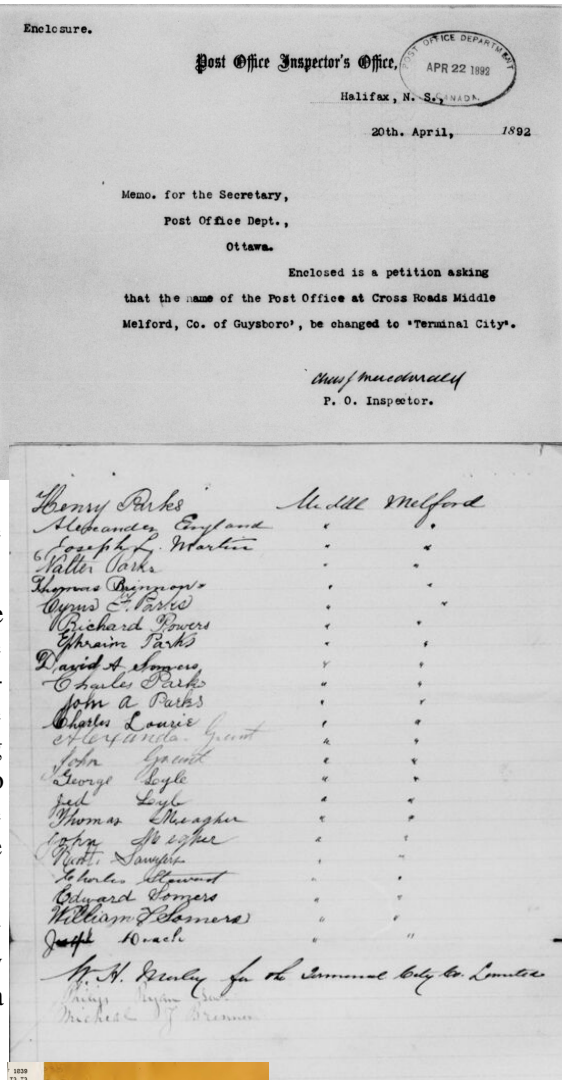 Enclosure.
Post Office Inspector's Office,
POST OFFICE DEPARTMENT
APR 22 1892
CANADA.
Halifax, N. S.,
20th. April, 1892
Memo. for the Secretary,
Post Office Dept.,
Ottawa.
Enclosed is a petition asking
that the name of the Post Office at Cross Roads Middle
Melford, Co. of Guysboro', be changed to "Terminal City".
Macdonald
P. O. Inspector.
Henry Parks Middl Melford
Alexander England " "
Joseph L. Martin " "
Walter Parks " "
Thomas Brinnon " "
Cyrus F. Parks " "
Richard Powers " "
Ephraim Parks " "
David A Somers " "
Charles Park " "
John A Parks " "
Charles Lourie " "
Alexanda Grant " "
John Grant " "
George Lyle " "
Jed Lyle " "
Thomas Meagher " "
John Megher " "
Sawyers " "
Charles Stewart " "
Edward Somers " "
William Somers " "
" "
W. H. for the Terminal City Co. Limited
Ryan
Micheal J Brenna
1839